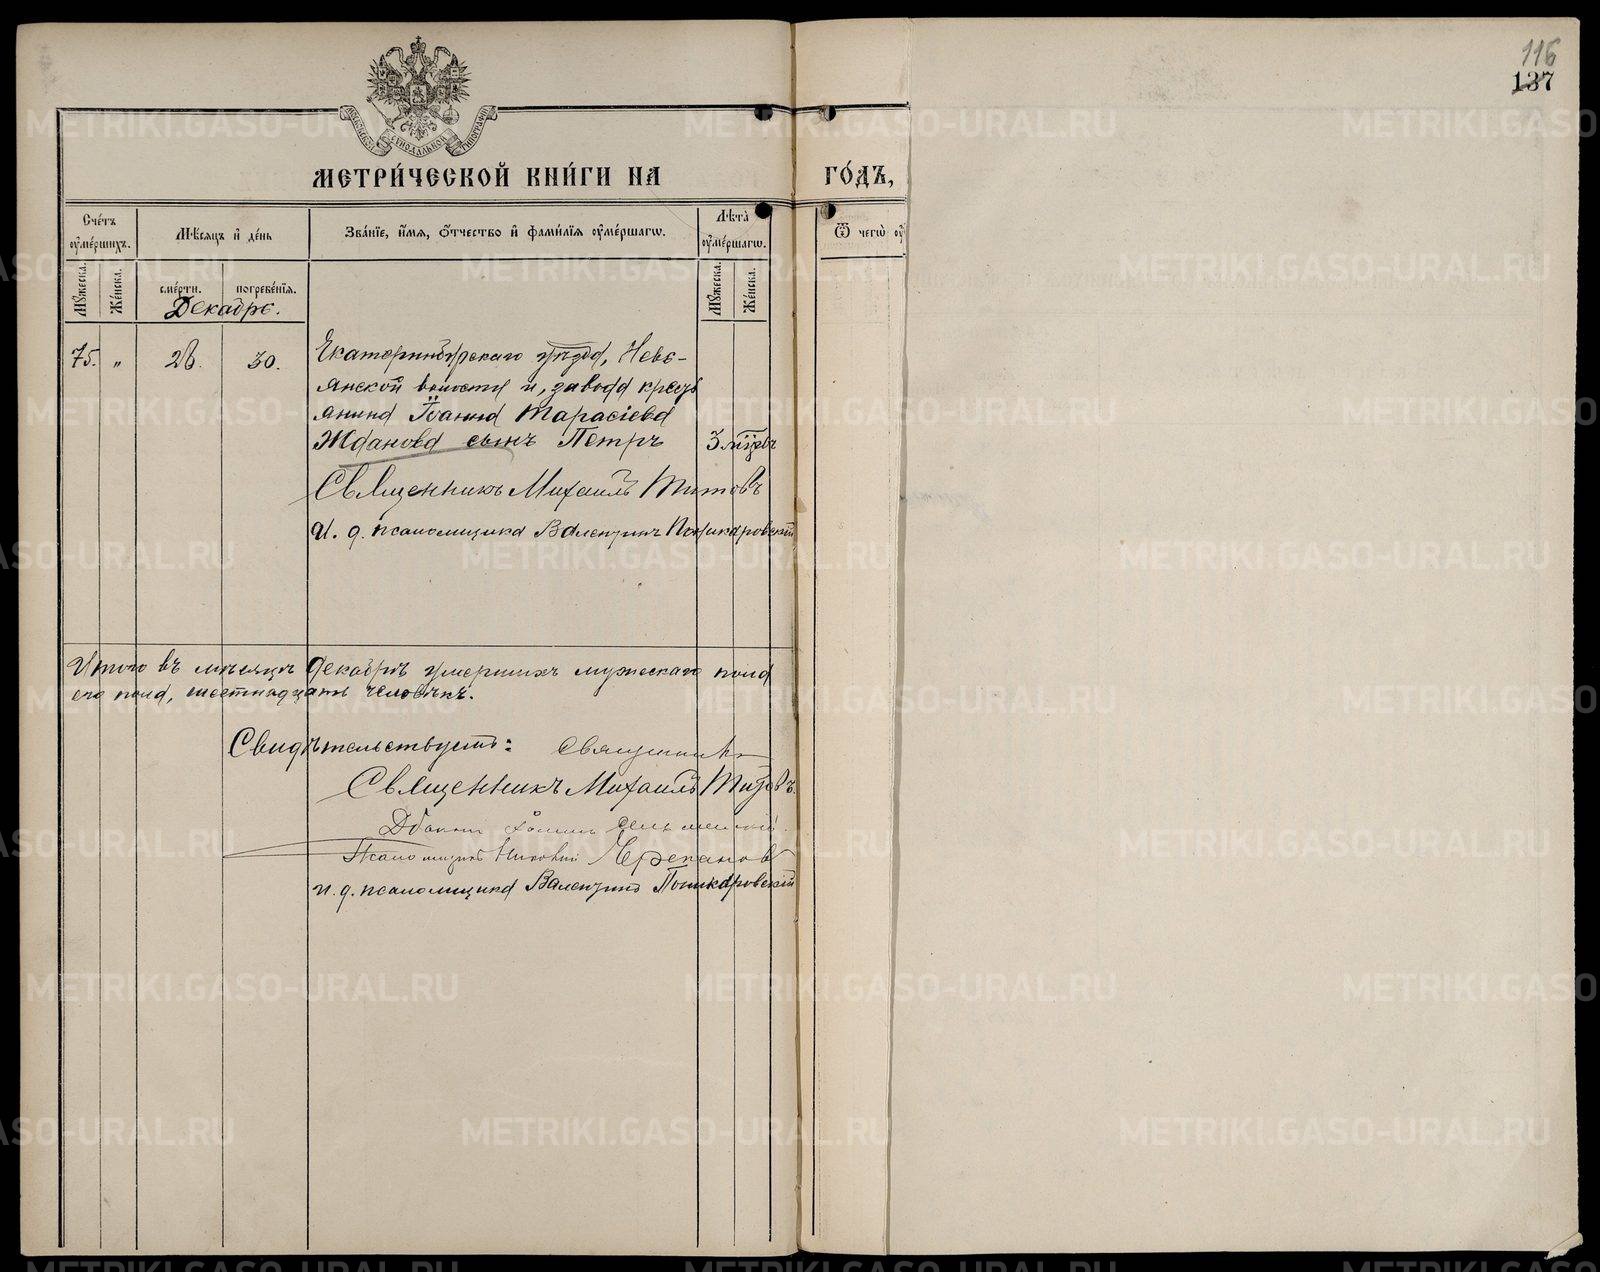 116
137
МОСКОВСКОЙ СѴНОДАЛЬНОЙ ТИПОГРАФІИ
МЕТРИ́ЧЕСКОЙ КНИ́ГИ НА ГО́ДЪ,
Сче́тъ ᲂу҆ме́ршихъ.
Мѣ́сѧцъ и҆ де́нь
Зва́нїе, и҆́мѧ, ѻ҆́тчество и҆ фами́лїѧ ᲂу҆ме́ршагѡ.
Лѣ́та ᲂу҆ме́ршагѡ.
Ѿ чегѡ̀ ᲂу҆
Мꙋ́жеска.
Же́нска.
сме́рти.
погребе́нїѧ.
Мꙋ́жеска.
Же́нска.
Декабрь.
75. " 28. 30. Екатеринбургскаго уѣзда, Невь-
янской волости и, завода крестъ
янина Іоанна Тарасіева
Жданова сынъ Петръ 3 мѣс.
Священникъ Михаилъ Титовъ
И. д. псаломщика Валентинъ Поникаровскій
Итого въ мѣсяцѣ Декабрѣ умершихъ мужескаго пола
его пола, шестнадцать человѣкъ.
Свидѣтельствуютъ: Священникъ
Священникъ Михаилъ Титовъ.
Діаконъ
Псаломщикъ Черепановъ
и. д. псаломщика Валентинъ Поникаровскій
METRIKI.GASO-URAL.RU